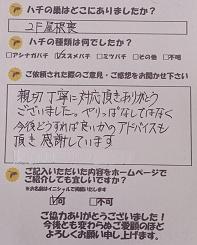 ハチの巣はどこにありましたか？
2F屋根裏
ハチの種類は何でしたか？
□アシナガバチ ☑スズメバチ □ミツバチ □その他 □不明
ご依頼された際のご意見・ご感想をお聞かせ下さい
親切丁寧に対応頂きありがとう
ございました。やりっぱなしではなく
今後どうすれば良いかのアドバイスも
頂き感謝しています
ご記入いただいた内容をホームページで
ご紹介しても宜しいですか？
※お名前はイニシャルで掲載いたします
☑可 □不可
ご協力ありがとうございました！
今後とも変わらぬご愛顧のほど
よろしくお願い申し上げます。